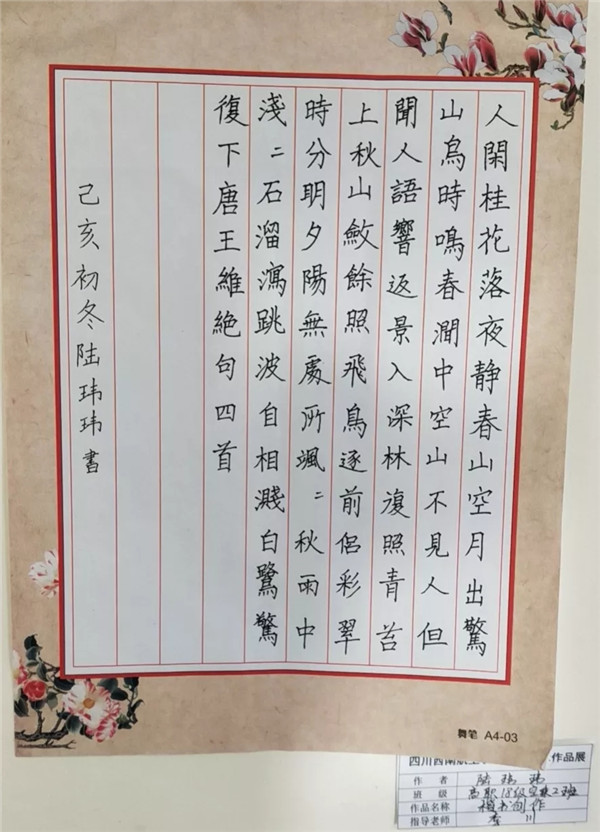 人閑桂花落夜静春山空月出驚
山鳥時鳴春澗中空山不見人但
聞人語響返景入深林復照青苔
上秋山斂餘照飛鳥逐前侶彩翠
時分明夕陽無處所颯〻秋雨中
淺〻石溜瀉跳波自相濺白鷺驚
復下唐王維絕句四首
己亥初冬陆玮玮書
舞笔 A4-03
四川西南航空 作品展
作者 陆玮玮
班级 高职18级空乘2班
作品名称 楷书创作
指导老师 李川